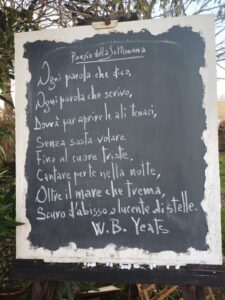 Poesia della Settimana
Ogni parola che dico,
Ogni parola che scrivo,
Dovrà pur aprire le ali tenaci,
Senza sosta volare.
Fino al cuore triste.
Cantare per te nella notte,
Oltre il mare che trema,
Scuro d'abisso o lucente di stelle.
W. B. Yeats